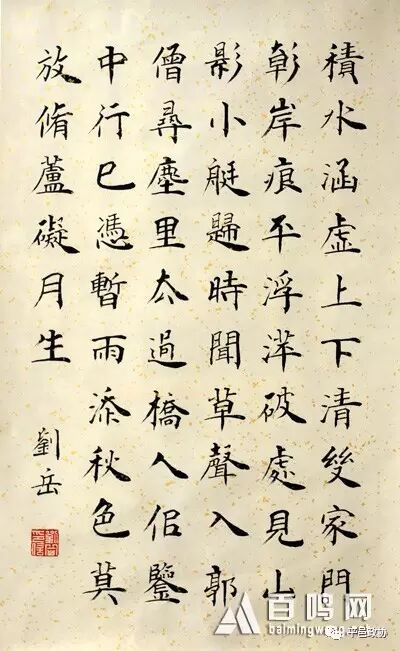 積水涵虛上下清幾家門
彰岸痕平浮萍破處見山
影小艇歸時聞草聲入郭
僧尋塵里去過橋人佀鑒
中行已憑暫雨添秋色莫
放脩蘆礙月生
劉岳
百鸣网
平邑政协